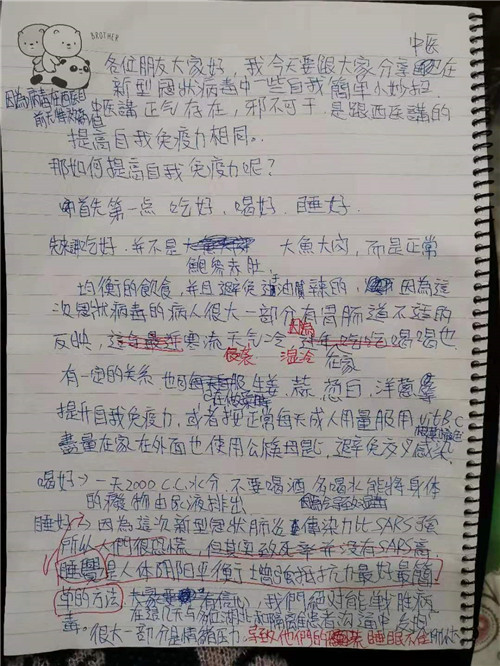 BROTHER
中医
各位朋友大家好,我今天要跟大家分享在
新型冠狀病毒中一些自我簡單小妙招
因為病毒在西医目
前无特效药
中医講正气存在,邪不可干.是跟西医講的
提高自我免疫力相同。
那如何提高自我免疫力呢?
首先第一点 吃好,喝好.睡好.
先來講吃好.并不是 大魚大肉,而是正常
鮑參赤肚,
均衡的飲食,并且避免油膩辣的, 因為這
次冠狀病毒的病人很大一部分有胃腸道不适的
反映, 寒流天气冷, 喝喝也
湿冷 在家
有一定的关系 也可 服生姜.蒜.葱白,洋蔥
提升自我免疫力,或者把正常每天成人用量服用vitB.C
盡量在家在外面也使用公筷母匙,避免交叉感染.
喝好→一天2000 C.C.水分,不要喝酒 多喝水能將身体
的穢物由尿液排出
睡好→因為這次新型冠狀肺炎 傳染力比SARS强
所以人們很恐慌,但其實致死率并没有SARS高,
睡覺是人体阴阳平衡,增強抵抗力最好最簡
單的方法, 有信心,我們絕对能戰胜病
毒。在這几天与 湖北 患者沟通中
很大一部分是情緒压力,导致他們的 睡眠不佳